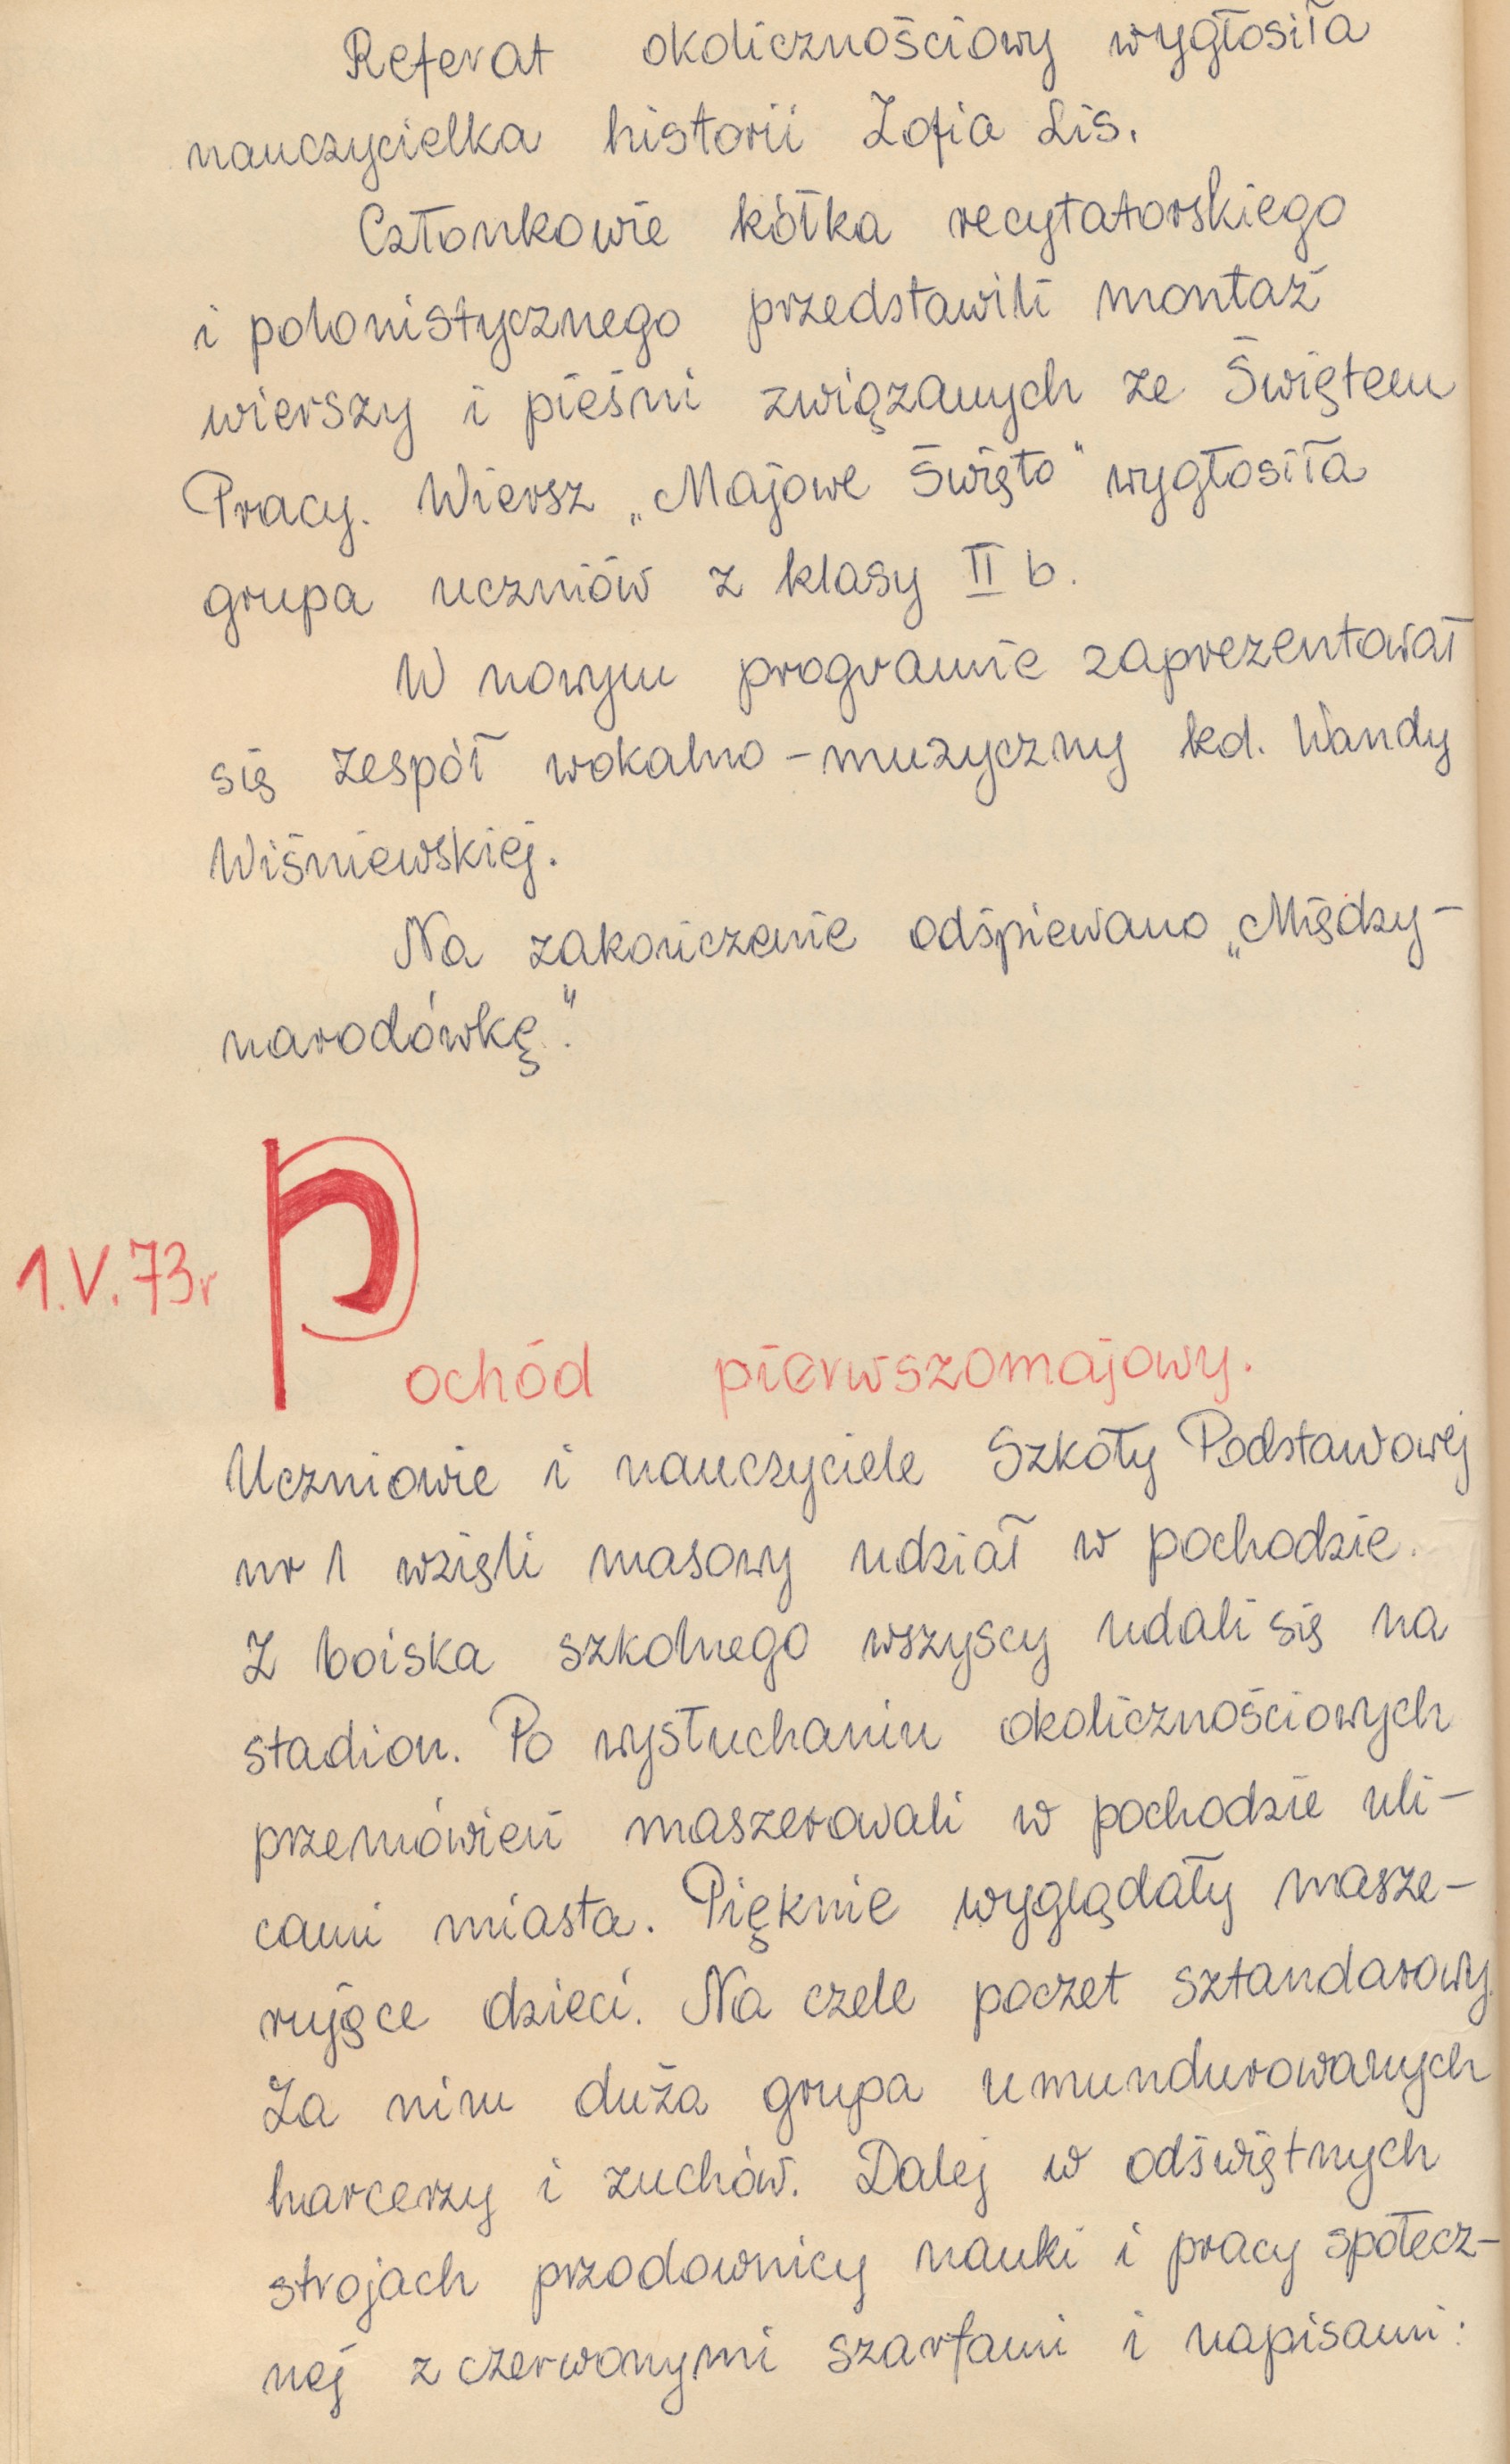 Referat okolicznościowy wygłosiła
nauczycielka historii Zofia Lis.
Członkowie kółka recytatorskiego
i polonistycznego przedstawili montaż
wierszy i pieśni związanych ze Świętem
Pracy. Wiersz „Majowe święto" wygłosiła
grupa uczniów z klasy II b.
W nowym programie zaprezentował
się zespół wokalno-muzyczny kol. Wandy
Wiśniewskiej.
Na zakończenie odśpiewano „Między-
narodówkę".
1.V.73r
Pochód pierwszomajowy.
Uczniowie i nauczyciele Szkoły Podstawowej
nr 1 wzięli masowy udział w pochodzie.
Z boiska szkolnego wszyscy udali się na
stadion. Po wysłuchaniu okolicznościowych
przemówień maszerowali w pochodzie uli-
cami miasta. Pięknie wyglądały masze-
rujące dzieci. Na czele poczet sztandarowy.
Za nim duża grupa umundurowanych
harcerzy i zuchów. Dalej w odświętnych
strojach przodownicy nauki i pracy społecz-
nej z czerwonymi szarfami i napisami: